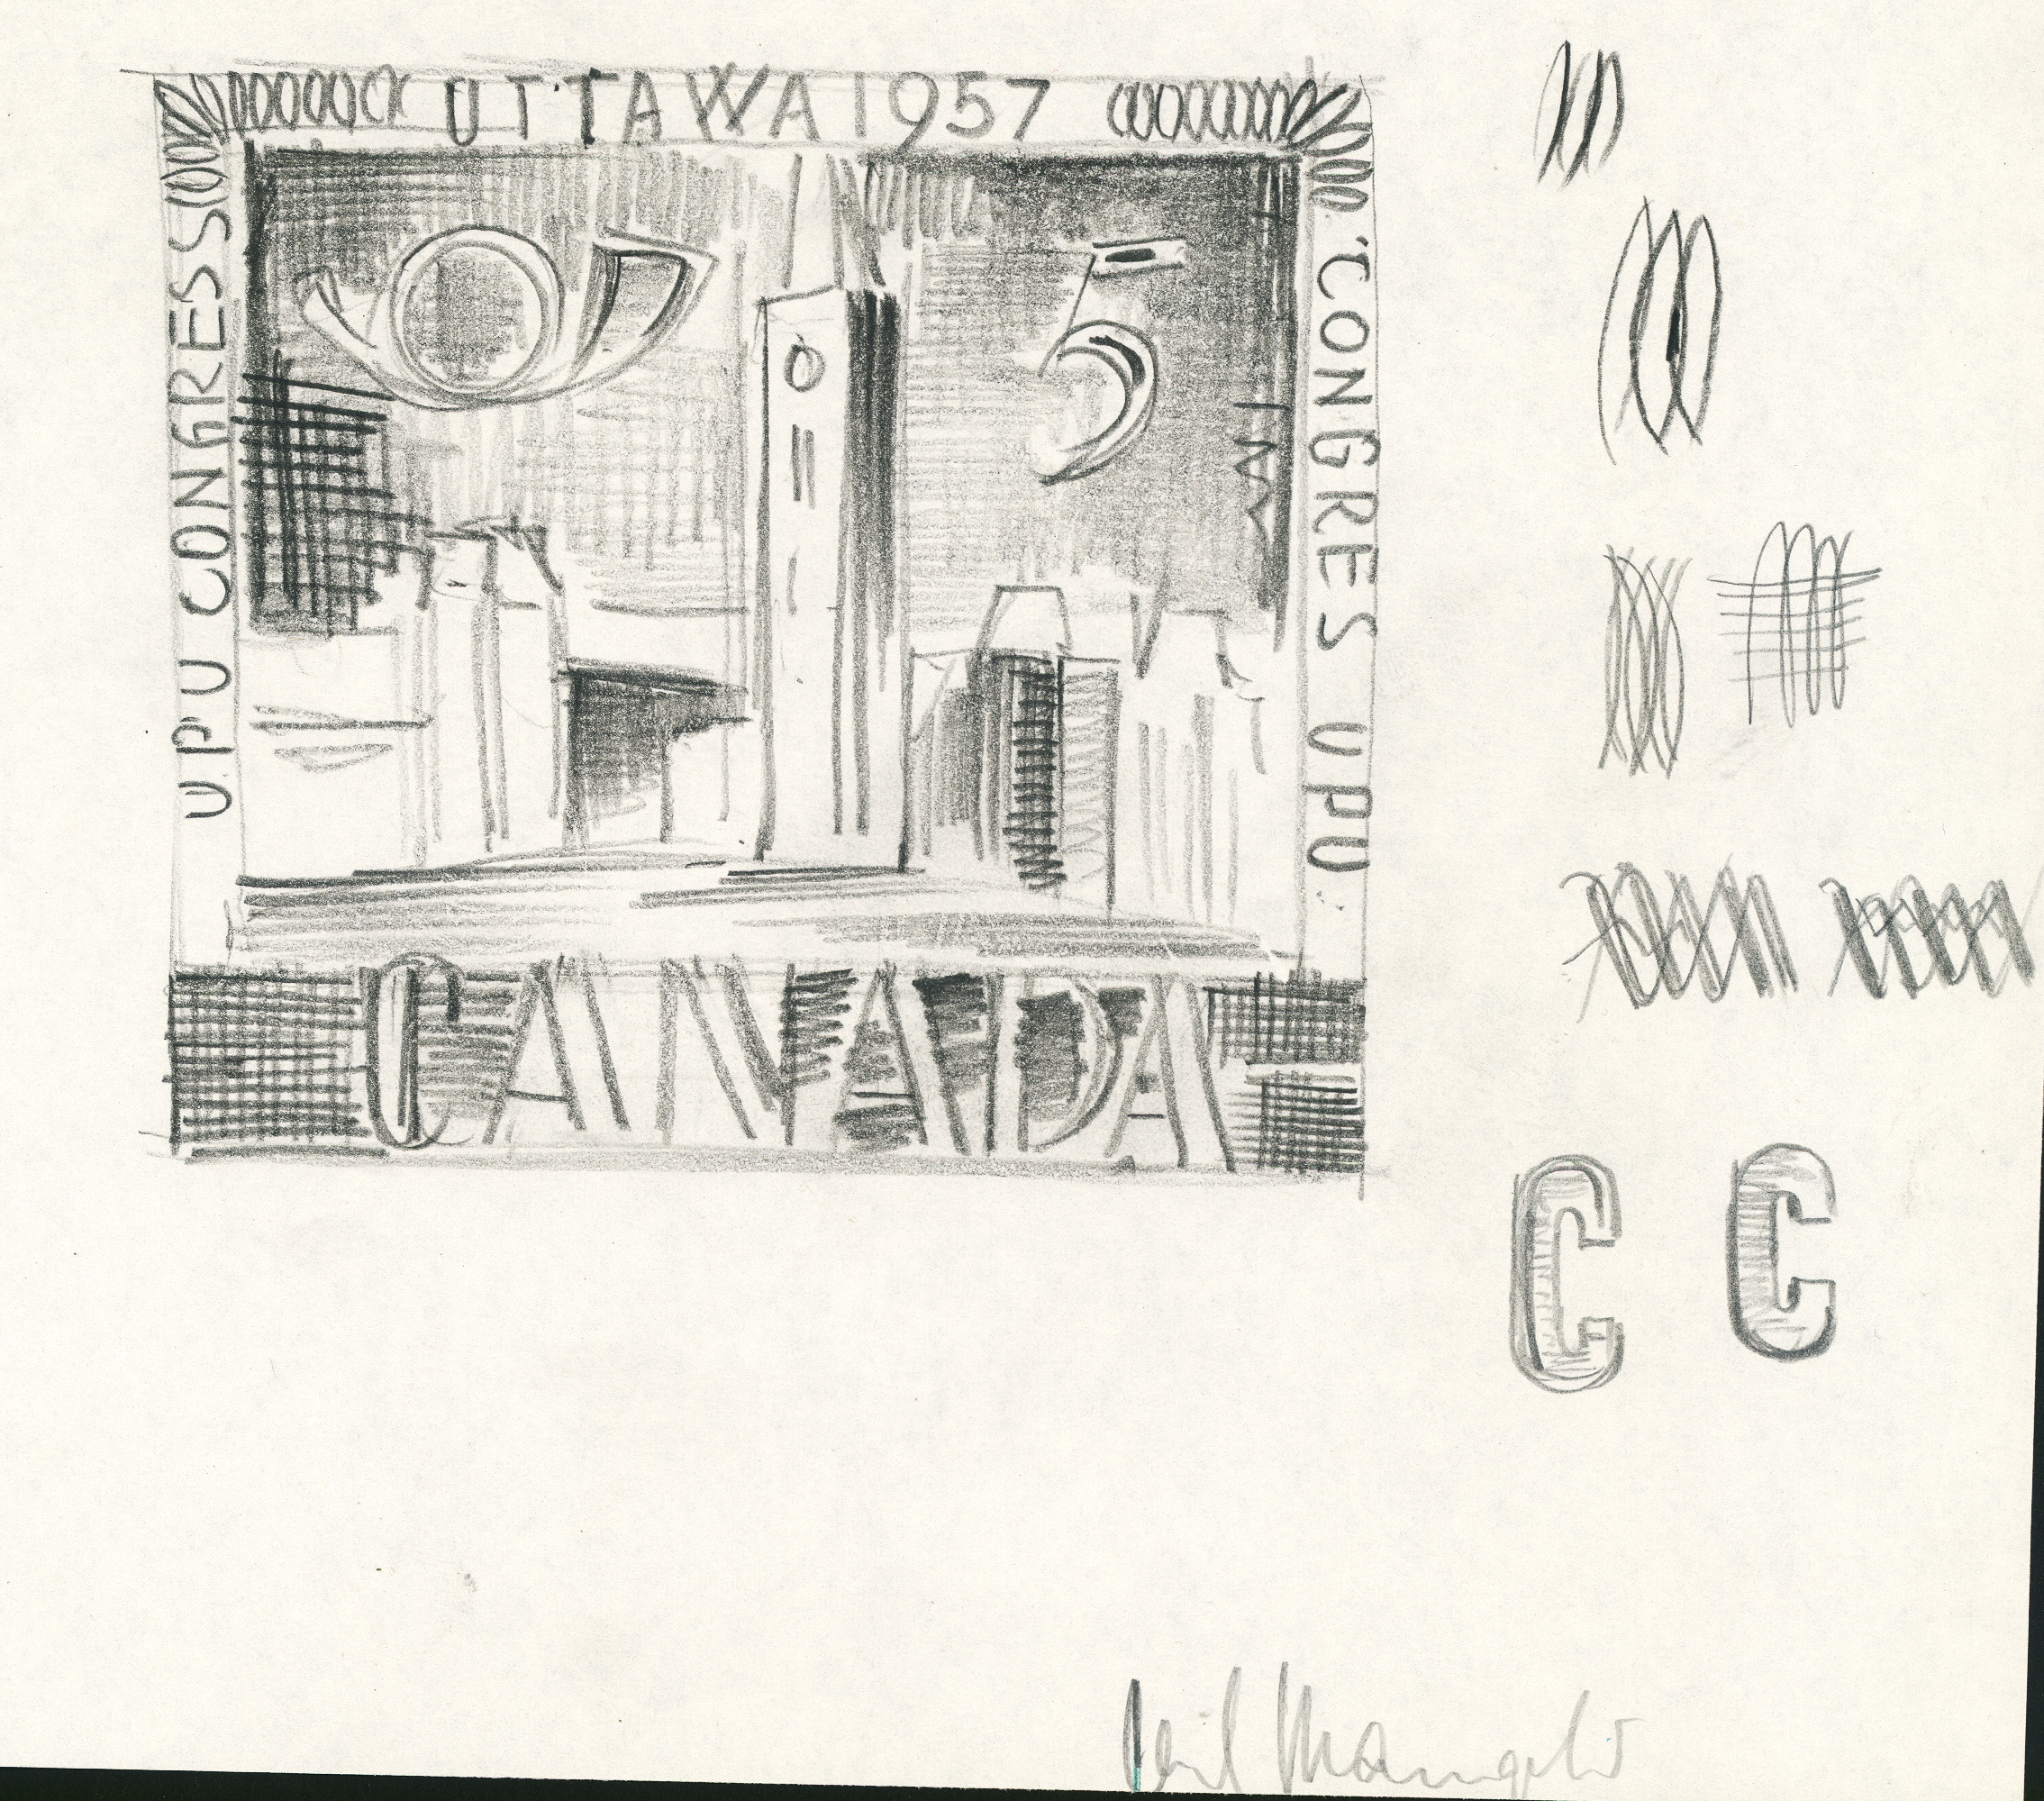 OTTAWA 1957
UPU CONGRESS
5
CONGRES UPU
CANADA
C C